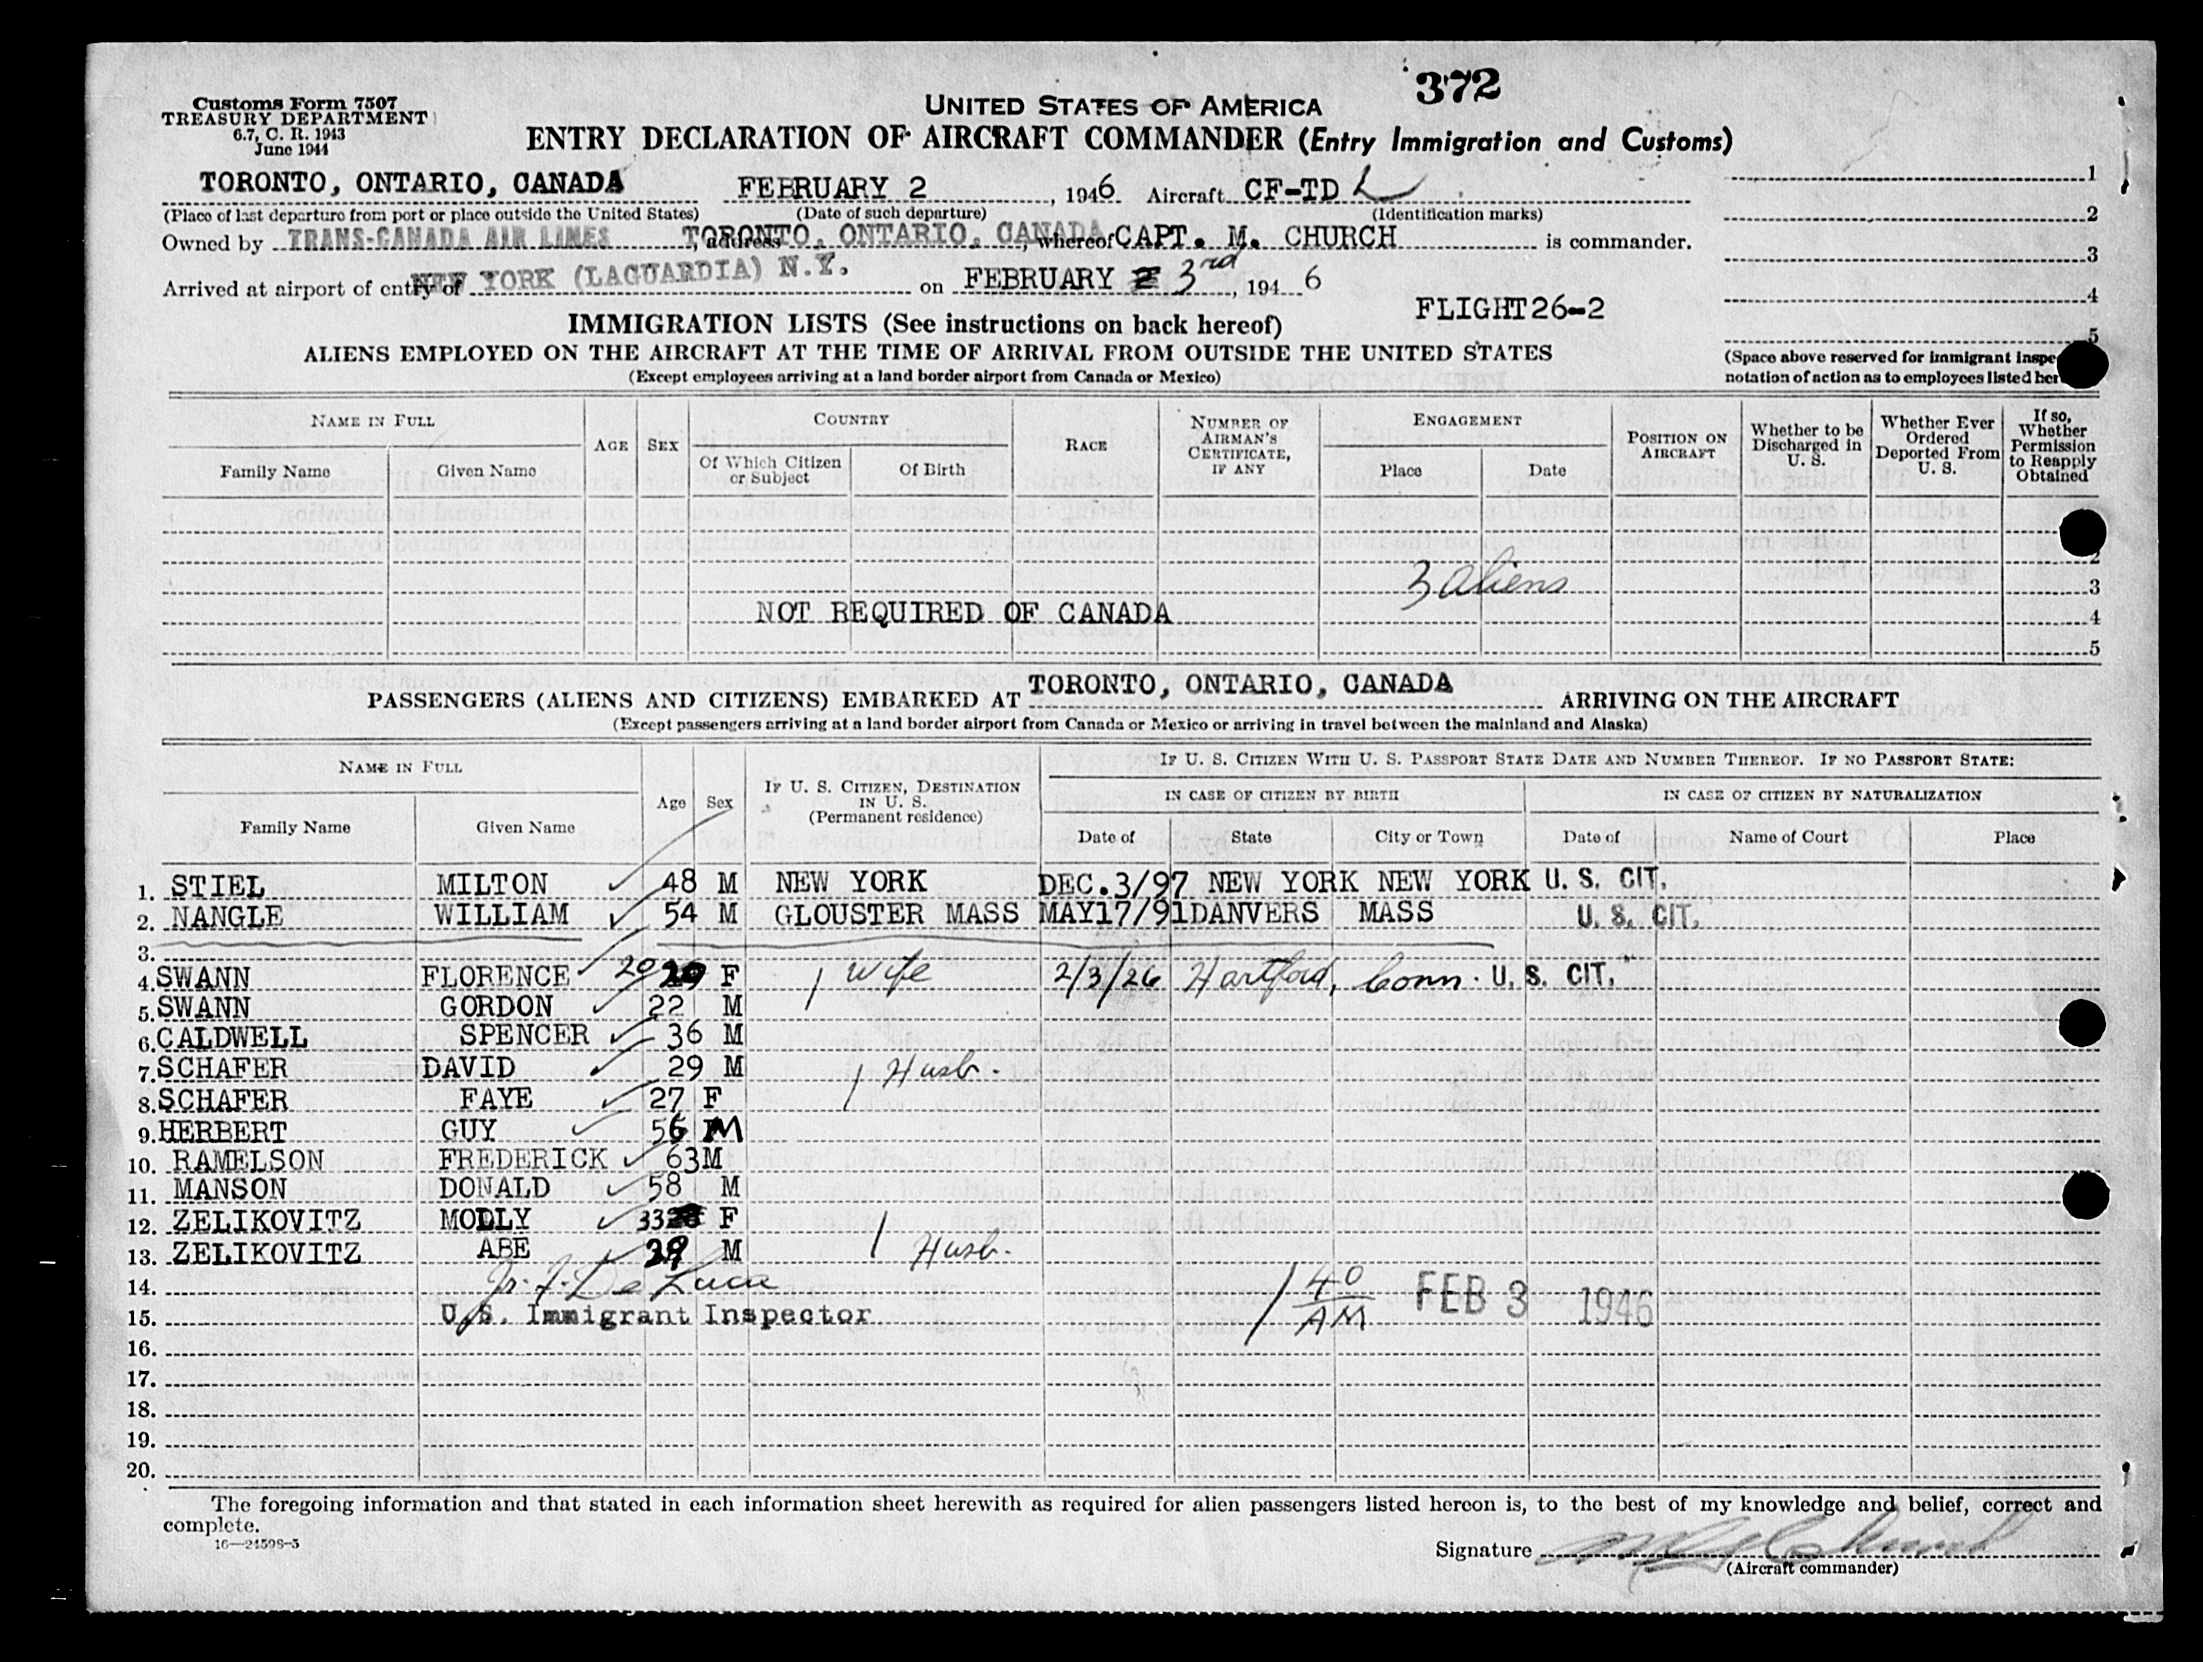 372
Customs Form 7507
TREASURY DEPARTMENT
6.7, C. R. 1943
June 1944
UNITED STATES OF AMERICA
ENTRY DECLARATION OF AIRCRAFT COMMANDER (Entry Immigration and Customs)
TORONTO, ONTARIO, CANADA FEBRUARY 2, 1946 Aircraft CF-TD L 1
(Place of last departure from port or place outside the United States) (Date of such departure) (Identification marks) 2
Owned by TRANS-CANADA AIR LINES, address TORONTO, ONTARIO, CANADA, whereof CAPT. M. CHURCH is commander. 3
Arrived at airport of entry of NEW YORK (LAGUARDIA) N.Y. on FEBRUARY 2 3rd, 1946 4
FLIGHT 26-2
IMMIGRATION LISTS (See instructions on back hereof) 5
ALIENS EMPLOYED ON THE AIRCRAFT AT THE TIME OF ARRIVAL FROM OUTSIDE THE UNITED STATES
(Space above reserved for immigrant inspe
(Except employees arriving at a land border airport from Canada or Mexico)
notation of action as to employees listed her
NAME IN FULL AGE SEX COUNTRY RACE NUMBER OF AIRMAN'S CERTIFICATE, IF ANY ENGAGEMENT POSITION ON AIRCRAFT Whether to be Discharged in U. S. Whether Ever Ordered Deported From U. S. If so, Whether Permission to Reapply Obtained
Family Name Given Name Of Which Citizen or Subject Of Birth Place Date
2
3 aliens 3
NOT REQUIRED OF CANADA 4
5
PASSENGERS (ALIENS AND CITIZENS) EMBARKED AT TORONTO, ONTARIO, CANADA ARRIVING ON THE AIRCRAFT
(Except passengers arriving at a land border airport from Canada or Mexico or arriving in travel between the mainland and Alaska)
NAME IN FULL Age Sex IF U. S. CITIZEN, DESTINATION IN U. S. (Permanent residence) IF U. S. CITIZEN WITH U. S. PASSPORT STATE DATE AND NUMBER THEREOF. IF NO PASSPORT STATE:
IN CASE OF CITIZEN BY BIRTH IN CASE OF CITIZEN BY NATURALIZATION
Family Name Given Name Date of State City or Town Date of Name of Court Place
1. STIEL MILTON 48 M NEW YORK DEC.3/97 NEW YORK NEW YORK U. S. CIT.
2. NANGLE WILLIAM 54 M GLOUSTER MASS MAY17/91 DANVERS MASS U. S. CIT.
3.
4. SWANN FLORENCE 20 20 F 1 Wife 2/3/26 Hartford, Conn. U. S. CIT.
5. SWANN GORDON 22 M
6. CALDWELL SPENCER 36 M
7. SCHAFER DAVID 29 M 1 Husb.
8. SCHAFER FAYE 27 F
9. HERBERT GUY 56 M
10. RAMELSON FREDERICK 63 M
11. MANSON DONALD 58 M
12. ZELIKOVITZ MOLLY 33 F
13. ZELIKOVITZ ABE 39 M 1 Husb.
14. De Luca 1 40 AM FEB 3 1946
15. U.S. Immigrant Inspector
16.
17.
18.
19.
20.
The foregoing information and that stated in each information sheet herewith as required for alien passengers listed hereon is, to the best of my knowledge and belief, correct and
complete.
16—24598-5
Signature
(Aircraft commander)